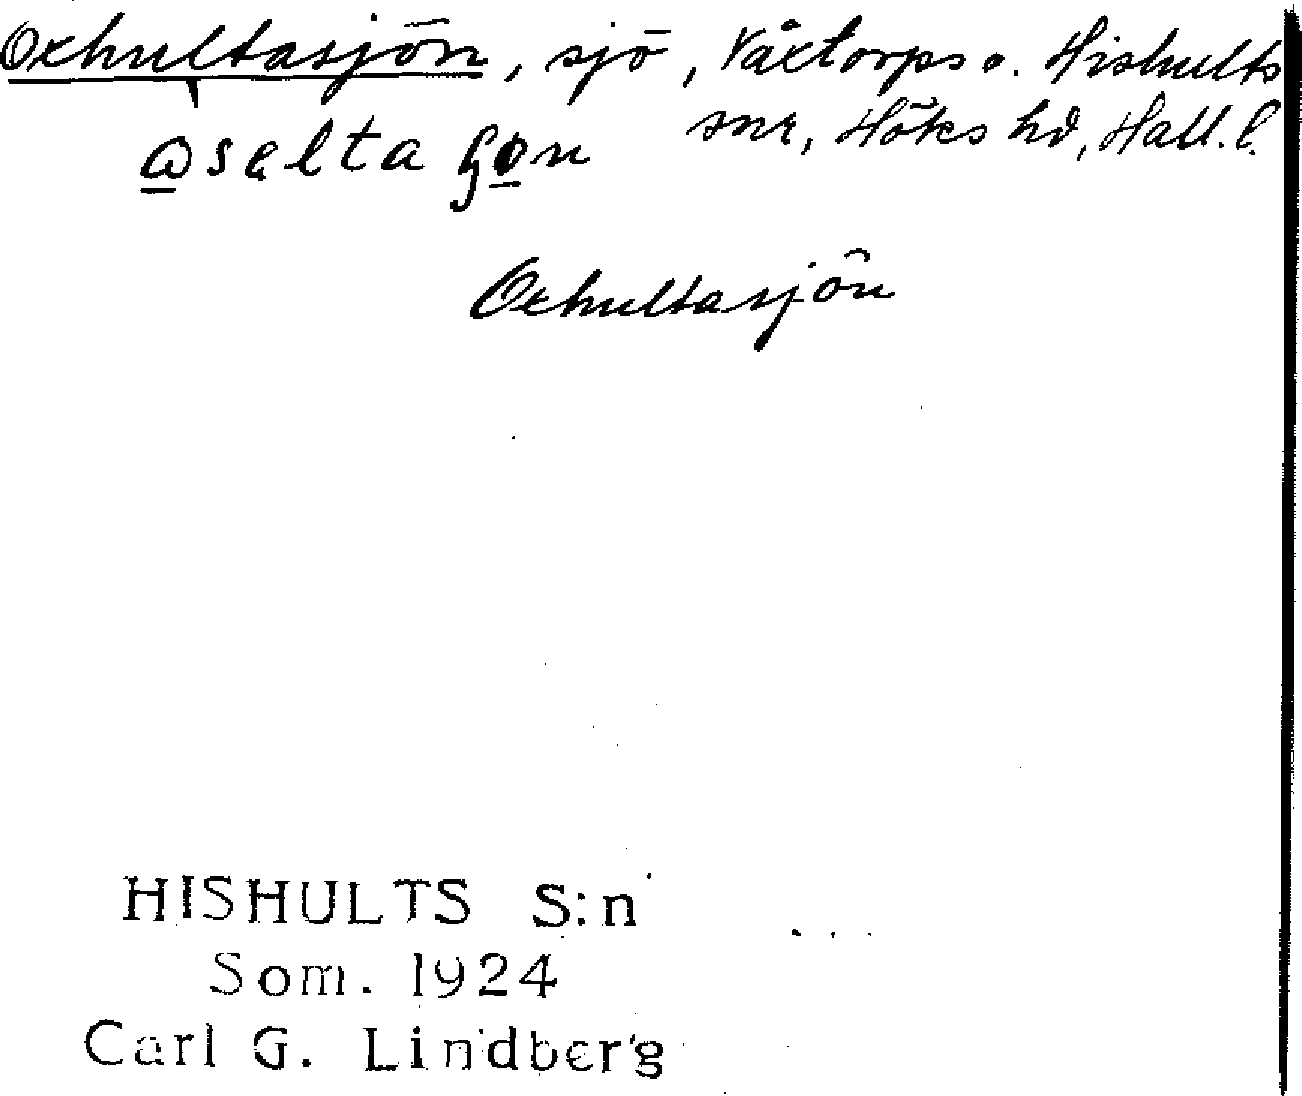 Oxhultasjön, sjö, Våxtorps o. Hishults
snr, Höks hd, Hall. l.
Oxhultasjön
HISHULTS S:n
Som. 1924
Carl G. Lindberg